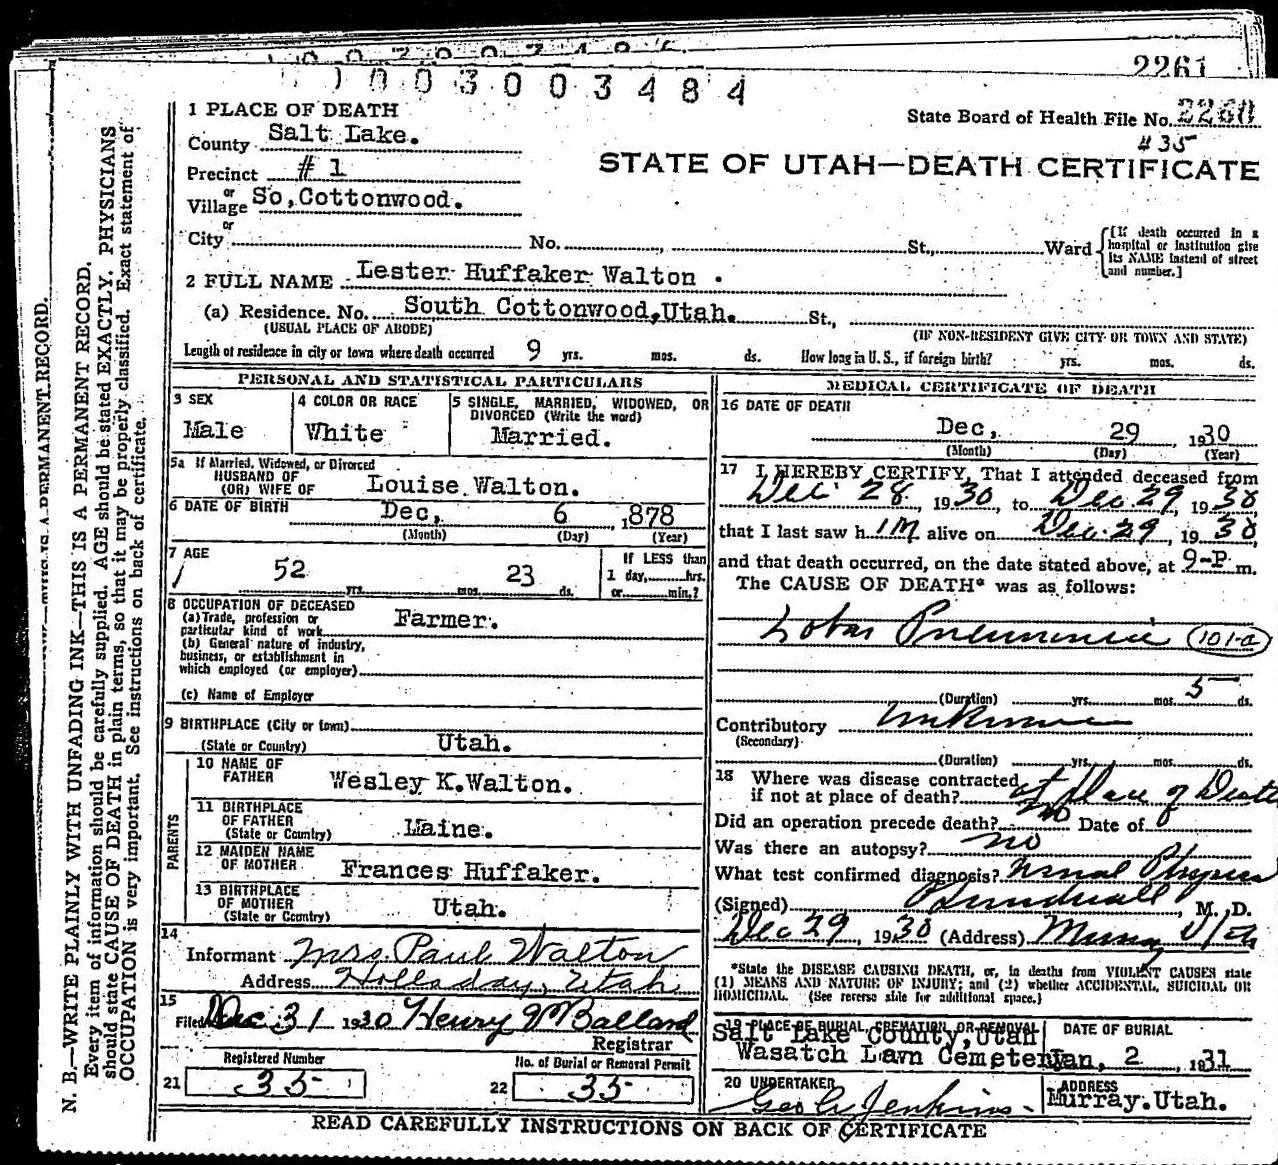 2261
1003003484
State Board of Health File No. 2260
#35
STATE OF UTAH—DEATH CERTIFICATE
1 PLACE OF DEATH
County Salt Lake.
Precinct #1
or
Village So, Cottonwood.
or
City No. St., Ward
[If death occurred in a hospital or institution give its NAME instead of street and number.]
2 FULL NAME Lester Huffaker Walton.
(a) Residence. No. South Cottonwood, Utah. St.,
(USUAL PLACE OF ABODE) (IF NON-RESIDENT GIVE CITY OR TOWN AND STATE)
Length of residence in city or town where death occurred 9 yrs. mos. ds. How long in U. S., if foreign birth? yrs. mos. ds.
PERSONAL AND STATISTICAL PARTICULARS
3 SEX
Male
4 COLOR OR RACE
White
5 SINGLE, MARRIED, WIDOWED, OR
DIVORCED (Write the word)
Married.
5a If Married, Widowed, or Divorced
HUSBAND OF
(OR) WIFE OF Louise Walton.
6 DATE OF BIRTH Dec, 6, 1878
(Month) (Day) (Year)
7 AGE
52 yrs. mos. 23 ds.
If LESS than
1 day,......hrs.
or......min.?
8 OCCUPATION OF DECEASED
(a) Trade, profession or
particular kind of work Farmer.
(b) General nature of industry,
business, or establishment in
which employed (or employer)
(c) Name of Employer
9 BIRTHPLACE (City or town)
(State or Country) Utah.
PARENTS
10 NAME OF
FATHER Wesley K. Walton.
11 BIRTHPLACE
OF FATHER
(State or Country) Maine.
12 MAIDEN NAME
OF MOTHER Frances Huffaker.
13 BIRTHPLACE
OF MOTHER
(State or Country) Utah.
14
Informant Mrs. Paul Walton
Address Holladay, Utah
15
Filed Dec 31 1930 Henry Ballard
Registrar
Registered Number
21 35
No. of Burial or Removal Permit
22 35
MEDICAL CERTIFICATE OF DEATH
16 DATE OF DEATH
Dec, 29, 1930
(Month) (Day) (Year)
17 I HEREBY CERTIFY, That I attended deceased from
Dec 28, 1930, to Dec. 29, 1930
that I last saw h im alive on Dec. 29, 1930,
and that death occurred, on the date stated above, at 9-P m.
The CAUSE OF DEATH* was as follows:
Lobar Pneumonia 101-a
(Duration) yrs. mos. 5 ds.
Contributory unknown
(Secondary)
(Duration) yrs. mos. ds.
18 Where was disease contracted
if not at place of death? at place of Death
Did an operation precede death? no Date of
Was there an autopsy? no
What test confirmed diagnosis?
(Signed) M. D.
Dec 29, 1930 (Address) Murray Utah
*State the DISEASE CAUSING DEATH, or, in deaths from VIOLENT CAUSES state
(1) MEANS AND NATURE OF INJURY; and (2) whether ACCIDENTAL, SUICIDAL OR
HOMICIDAL. (See reverse side for additional space.)
19 PLACE OF BURIAL, CREMATION, OR REMOVAL
Salt Lake County, Utah
Wasatch Lawn Cemetery
DATE OF BURIAL
Jan, 2, 1931
20 UNDERTAKER
Geo Jenkins.
ADDRESS
Murray. Utah.
READ CAREFULLY INSTRUCTIONS ON BACK OF CERTIFICATE
N. B.—WRITE PLAINLY WITH UNFADING INK—THIS IS A PERMANENT RECORD.
Every item of information should be carefully supplied. AGE should be stated EXACTLY. PHYSICIANS
should state CAUSE OF DEATH in plain terms, so that it may be properly classified. Exact statement of
OCCUPATION is very important. See instructions on back of certificate.
A PERMANENT RECORD.